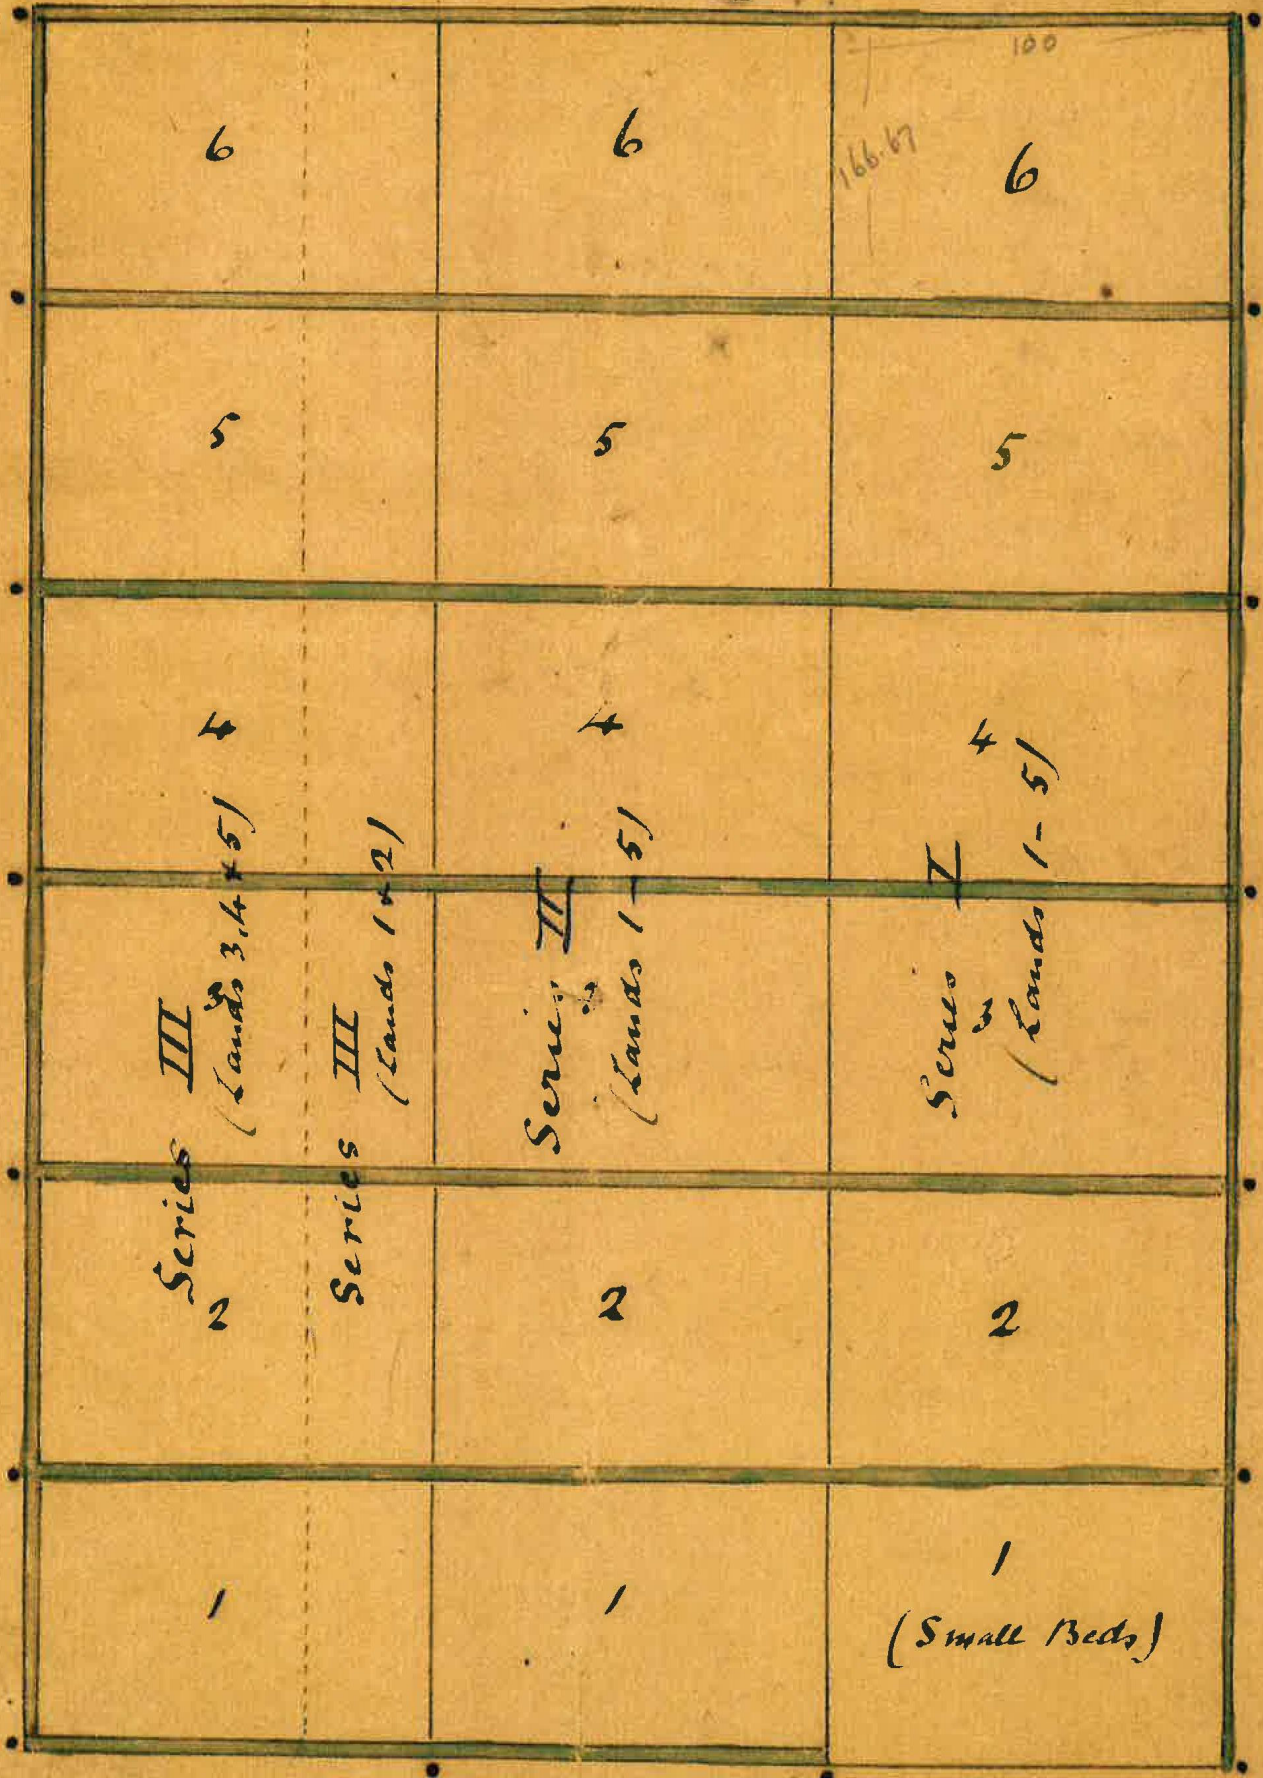 100
166.67
6
6
6
5
5
5
4
4
4
Series III
(Lands 3, 4 + 5)
Series III
(Lands 1 + 2)
Series II
(Lands 1-5)
Series I
(Lands 1-5)
2
2
2
1
1
1
(Small Beds)